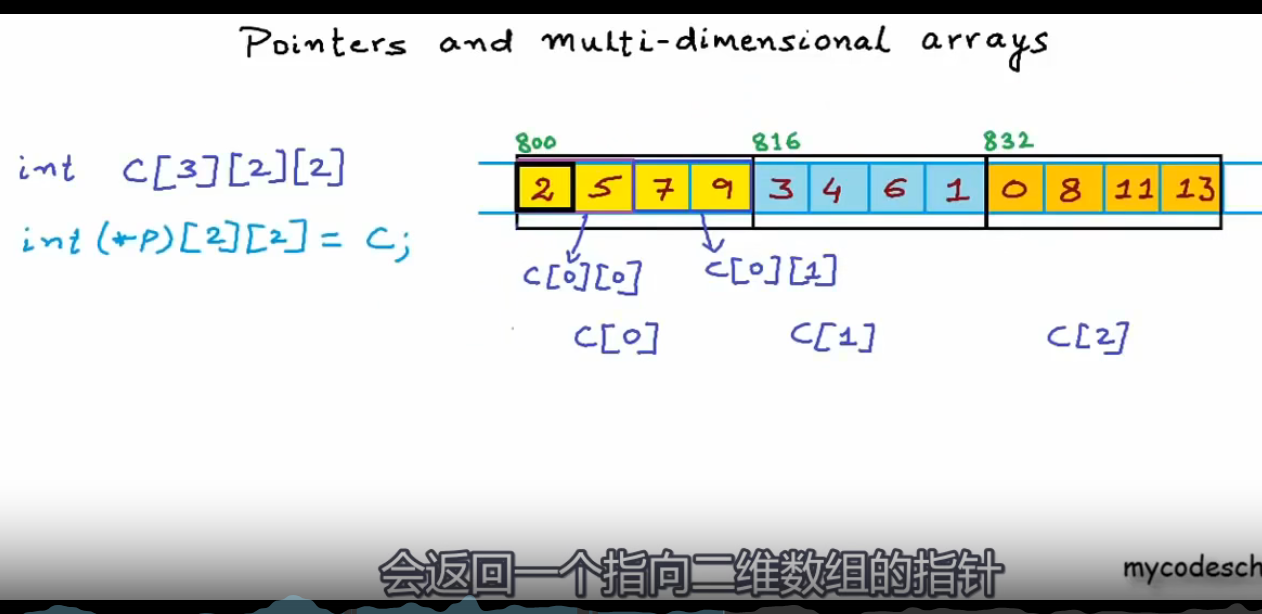 Pointers and multi-dimensional arrays
int C[3][2][2]
int (*P)[2][2] = C;
800 816 832
2 5 7 9 3 4 6 1 0 8 11 13
C[0][0] C[0][1]
C[0] C[1] C[2]
会返回一个指向二维数组的指针
mycodesch